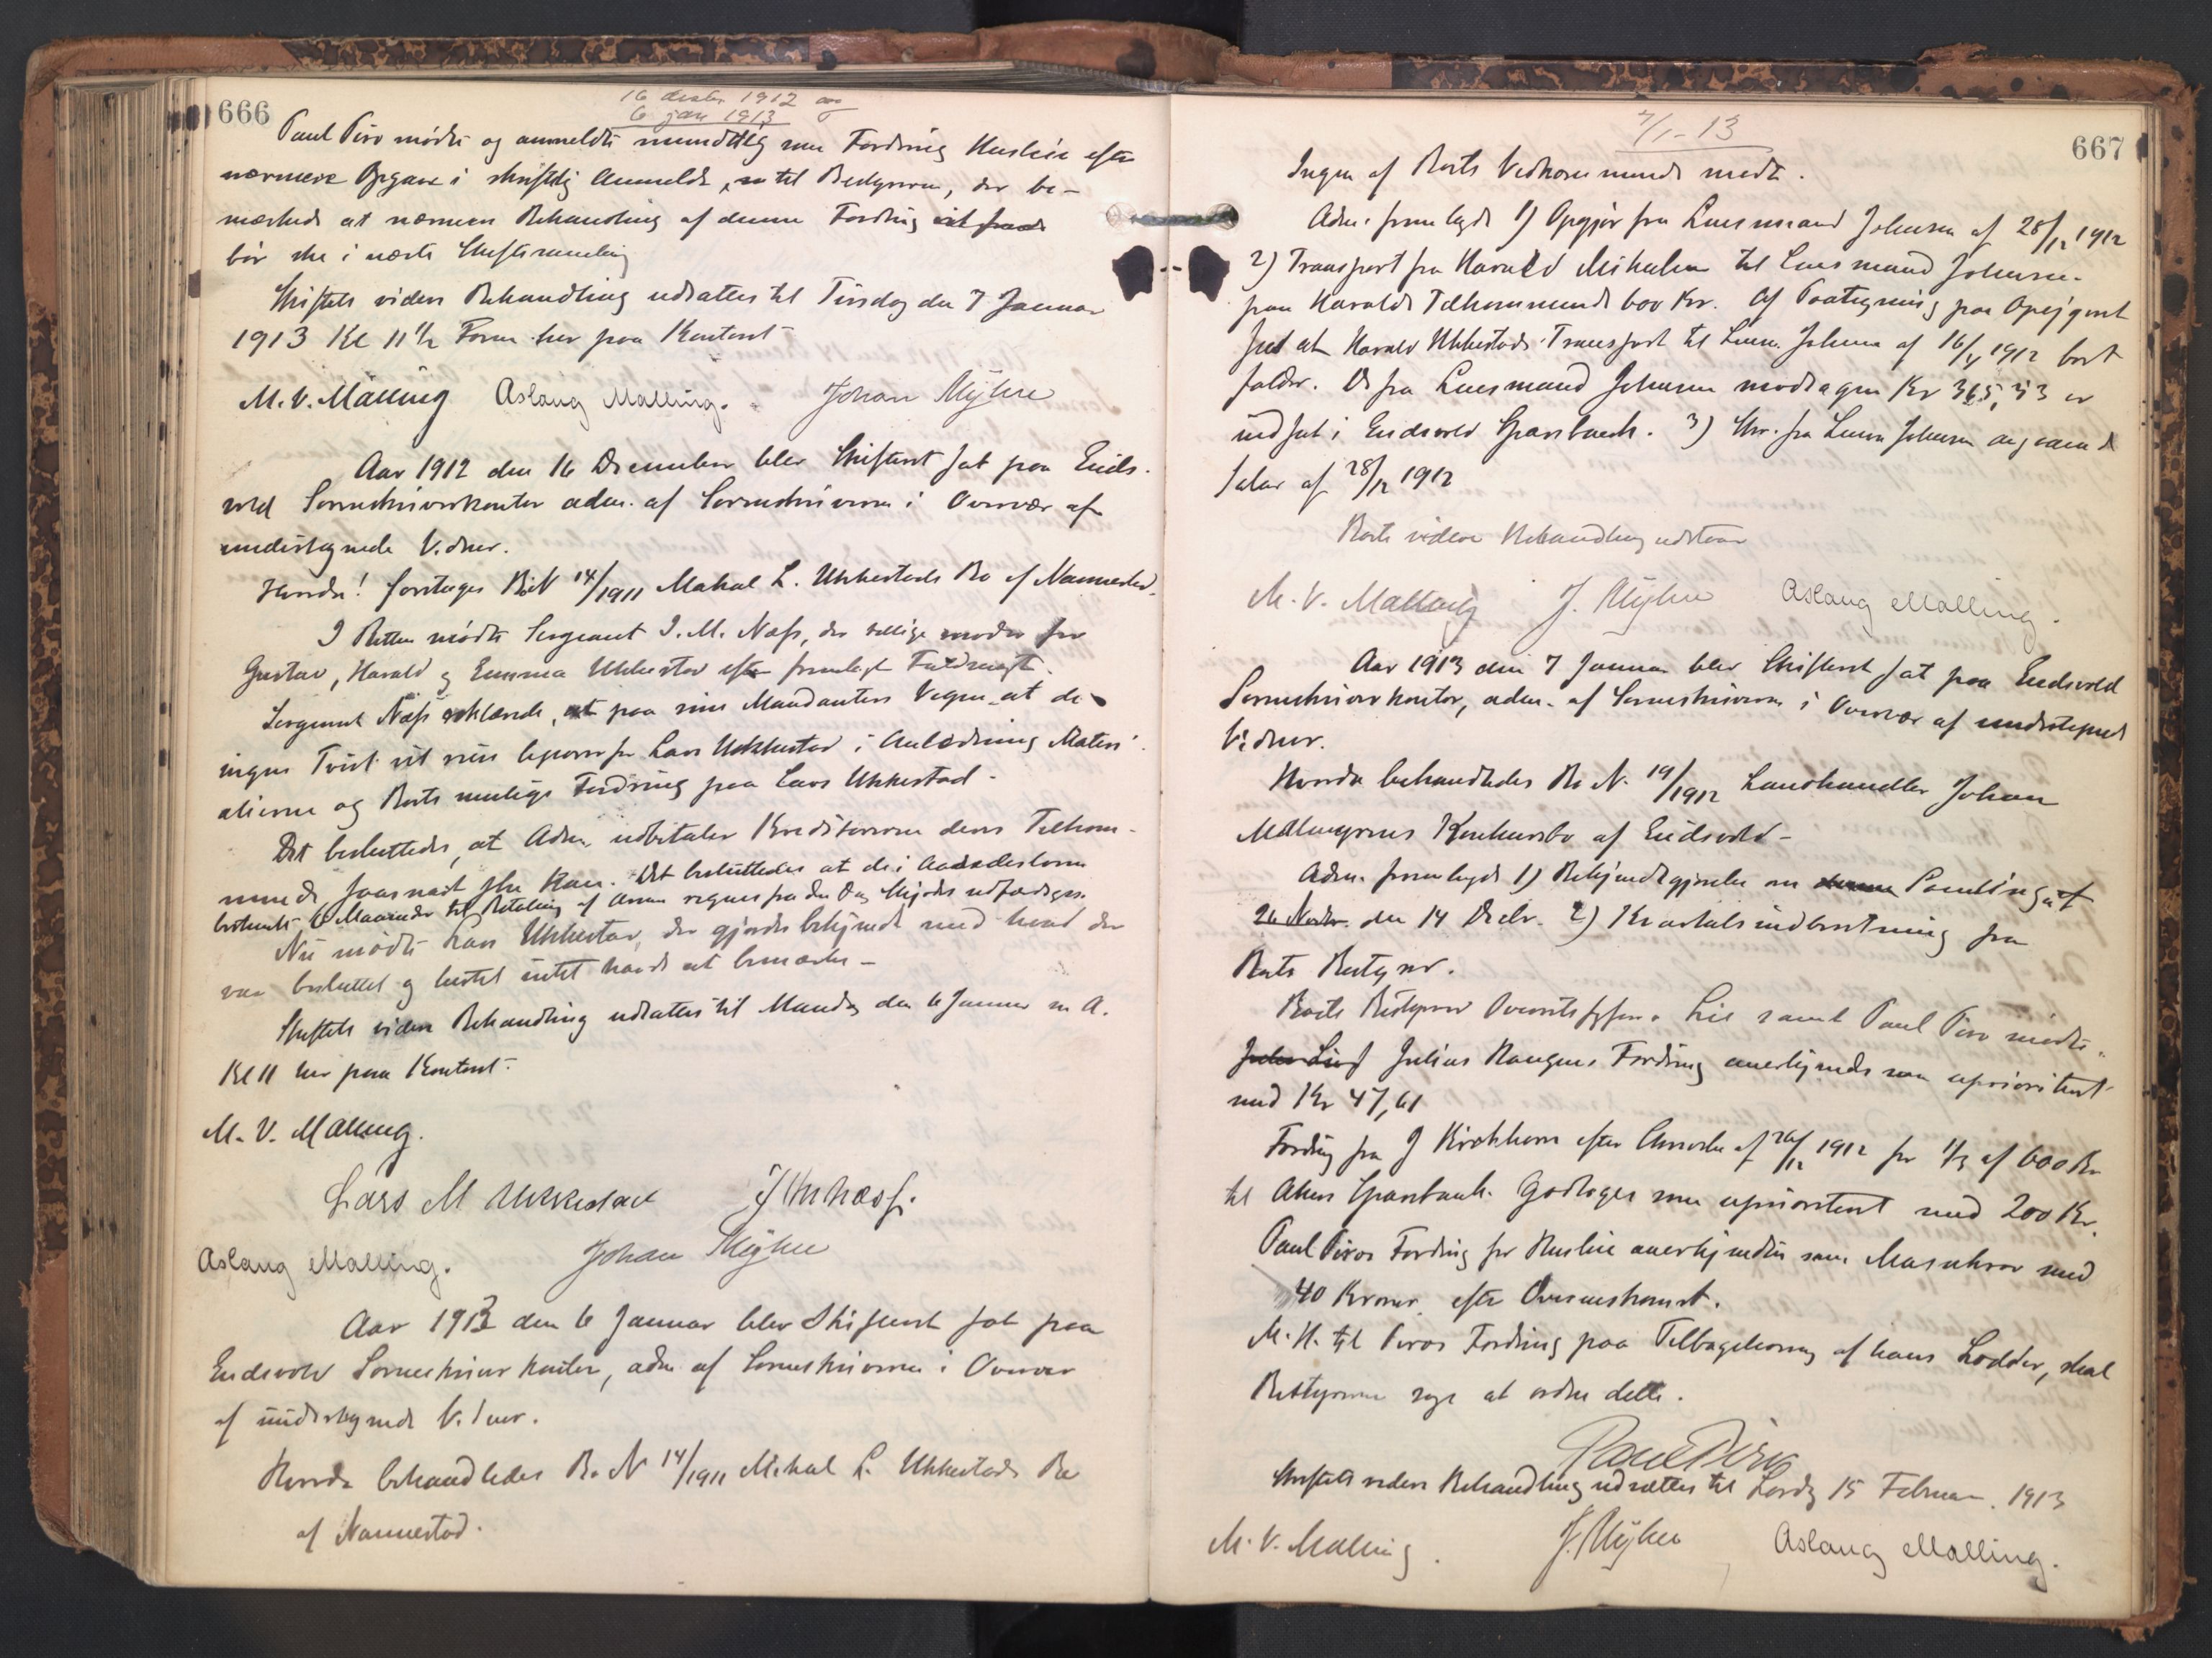 666
16 decbr 1912 og
6 jan 1913
Paul Piro mødte og anmeldte mundtlig sin Fordring Husleie efter
nærmere Opgave i skriftlig Anmeldelse til Bestyreren, der be-
mærkede at nærmere Behandling af denne Fordring
bør ske i næste Skiftesamling
Skiftets videre Behandling udsattes til Tirsdag den 7 Januar
1913 Kl 11 1/2 Form. her paa Kontoret
M. V. Malling Aslaug Malling. Johan Myhre
Aar 1912 den 16 December blev Skifteret sat paa Eids-
vold Sorenskriverkontor adm. af Sorenskriveren i Overvær af
undertegnede Vidner.
Hvorda! foretages Bo N 14/1911 L. Ukkestads Bo af Nannestad.
I Retten mødte Sergeant I. M. Næss, der tillige møder for
Gustav, Harald og Emma Ukkestad efter fremlagt Fuldmagt.
Sergeant Næss erklærede, at paa sine Mandanters Vegne at de
ingen Tvist vil reise ligeoverfor Lars Ukkestad i Anledning Materi-
alierne og Boets mulige Fordring paa Lars Ukkestad.
Det besluttedes, at Adm. udbetaler Kreditorerne deres Tilkom-
mende saasnart ske kan. Det besluttedes at de i Aasædesloven
bestemte 6 Maaneder til Betaling af Arven regnes fra den Dag Skjøde udfærdiges.
Nu mødte Lars Ukkestad, der gjordes bekjendt med hvad der
var besluttet og hertil intet havde at bemærke –
Skiftets videre Behandling udsattes til Mandag den 6 Januar n. A.
Kl 11 her paa Kontoret.
M. V. Malling.
Lars M Ukkestad I M Næss.
Aslaug Malling. Johan Myhre
Aar 1913 den 6 Januar blev Skifteret sat paa
Eidsvold Sorenskriverkontor, adm. af Sorenskriveren i Overvær
af undertegnede Vidner.
Hvorda behandledes Bo N 14/1911 Mikal L. Ukkestads Bo
af Nannestad.
7/1-13
667
Ingen af Boets Vedkommende mødte.
Adm. fremlagde 1) Opgjør fra Lensmand Johnsen af 28/12 1912
2) Transport fra Harald til Lensmand Johnsen
paa Haralds Tilkommende 600 Kr. Af Paategning paa Opgjøret
sees at Harald Ukkestads Transport til Lensm. Johnsen af 16/4 1912 bort
falder. De fra Lensmand Johnsen modtagne Kr 365,33 er
indsat i Eidsvold Sparebank. 3) Skr. fra Lensm Johnsen angaaende
Salær af 28/12 1912
Boets videre Behandling udstaar
M. V. Malling J. Myhre Aslaug Malling.
Aar 1913 den 7 Januar blev Skifteret sat paa Eidsvold
Sorenskriverkontor, adm. af Sorenskriveren i Overvær af undertegnede
Vidner.
Hvorda behandledes Bo N. 19/1912 Landhandler Johan
Konkursbo af Eidsvold –
Adm. fremlagde 1) Bekjendtgjørelse om Samling af
26 Novbr. den 14 Decbr. 2) Kvartalsindberetning fra
Boets Bestyrer.
Boets Bestyrer Overretssagfører Lie samt Paul Piro mødte.
Julius Haugens Fordring anerkjendes som uprioritert
med Kr 47,61
Fordring fra J Kirkhorn efter Anmeldelse af 20/12 1912 for 1/3 af 600 Kr
til Akers Sparebank. Godtages som uprioritert med 200 Kr.
Paul Piros Fordring for Husleie anerkjendtes som Massekrav med
40 Kroner efter Overenskomst.
M. H. til Piros Fordring paa Tilbagelevering af hans Lodder, skal
Bestyreren søge at ordne dette.
Paul Piro
Skiftets videre Behandling udsættes til Lørdag 15 Februar 1913
M. V. Malling. J. Myhre Aslaug Malling.